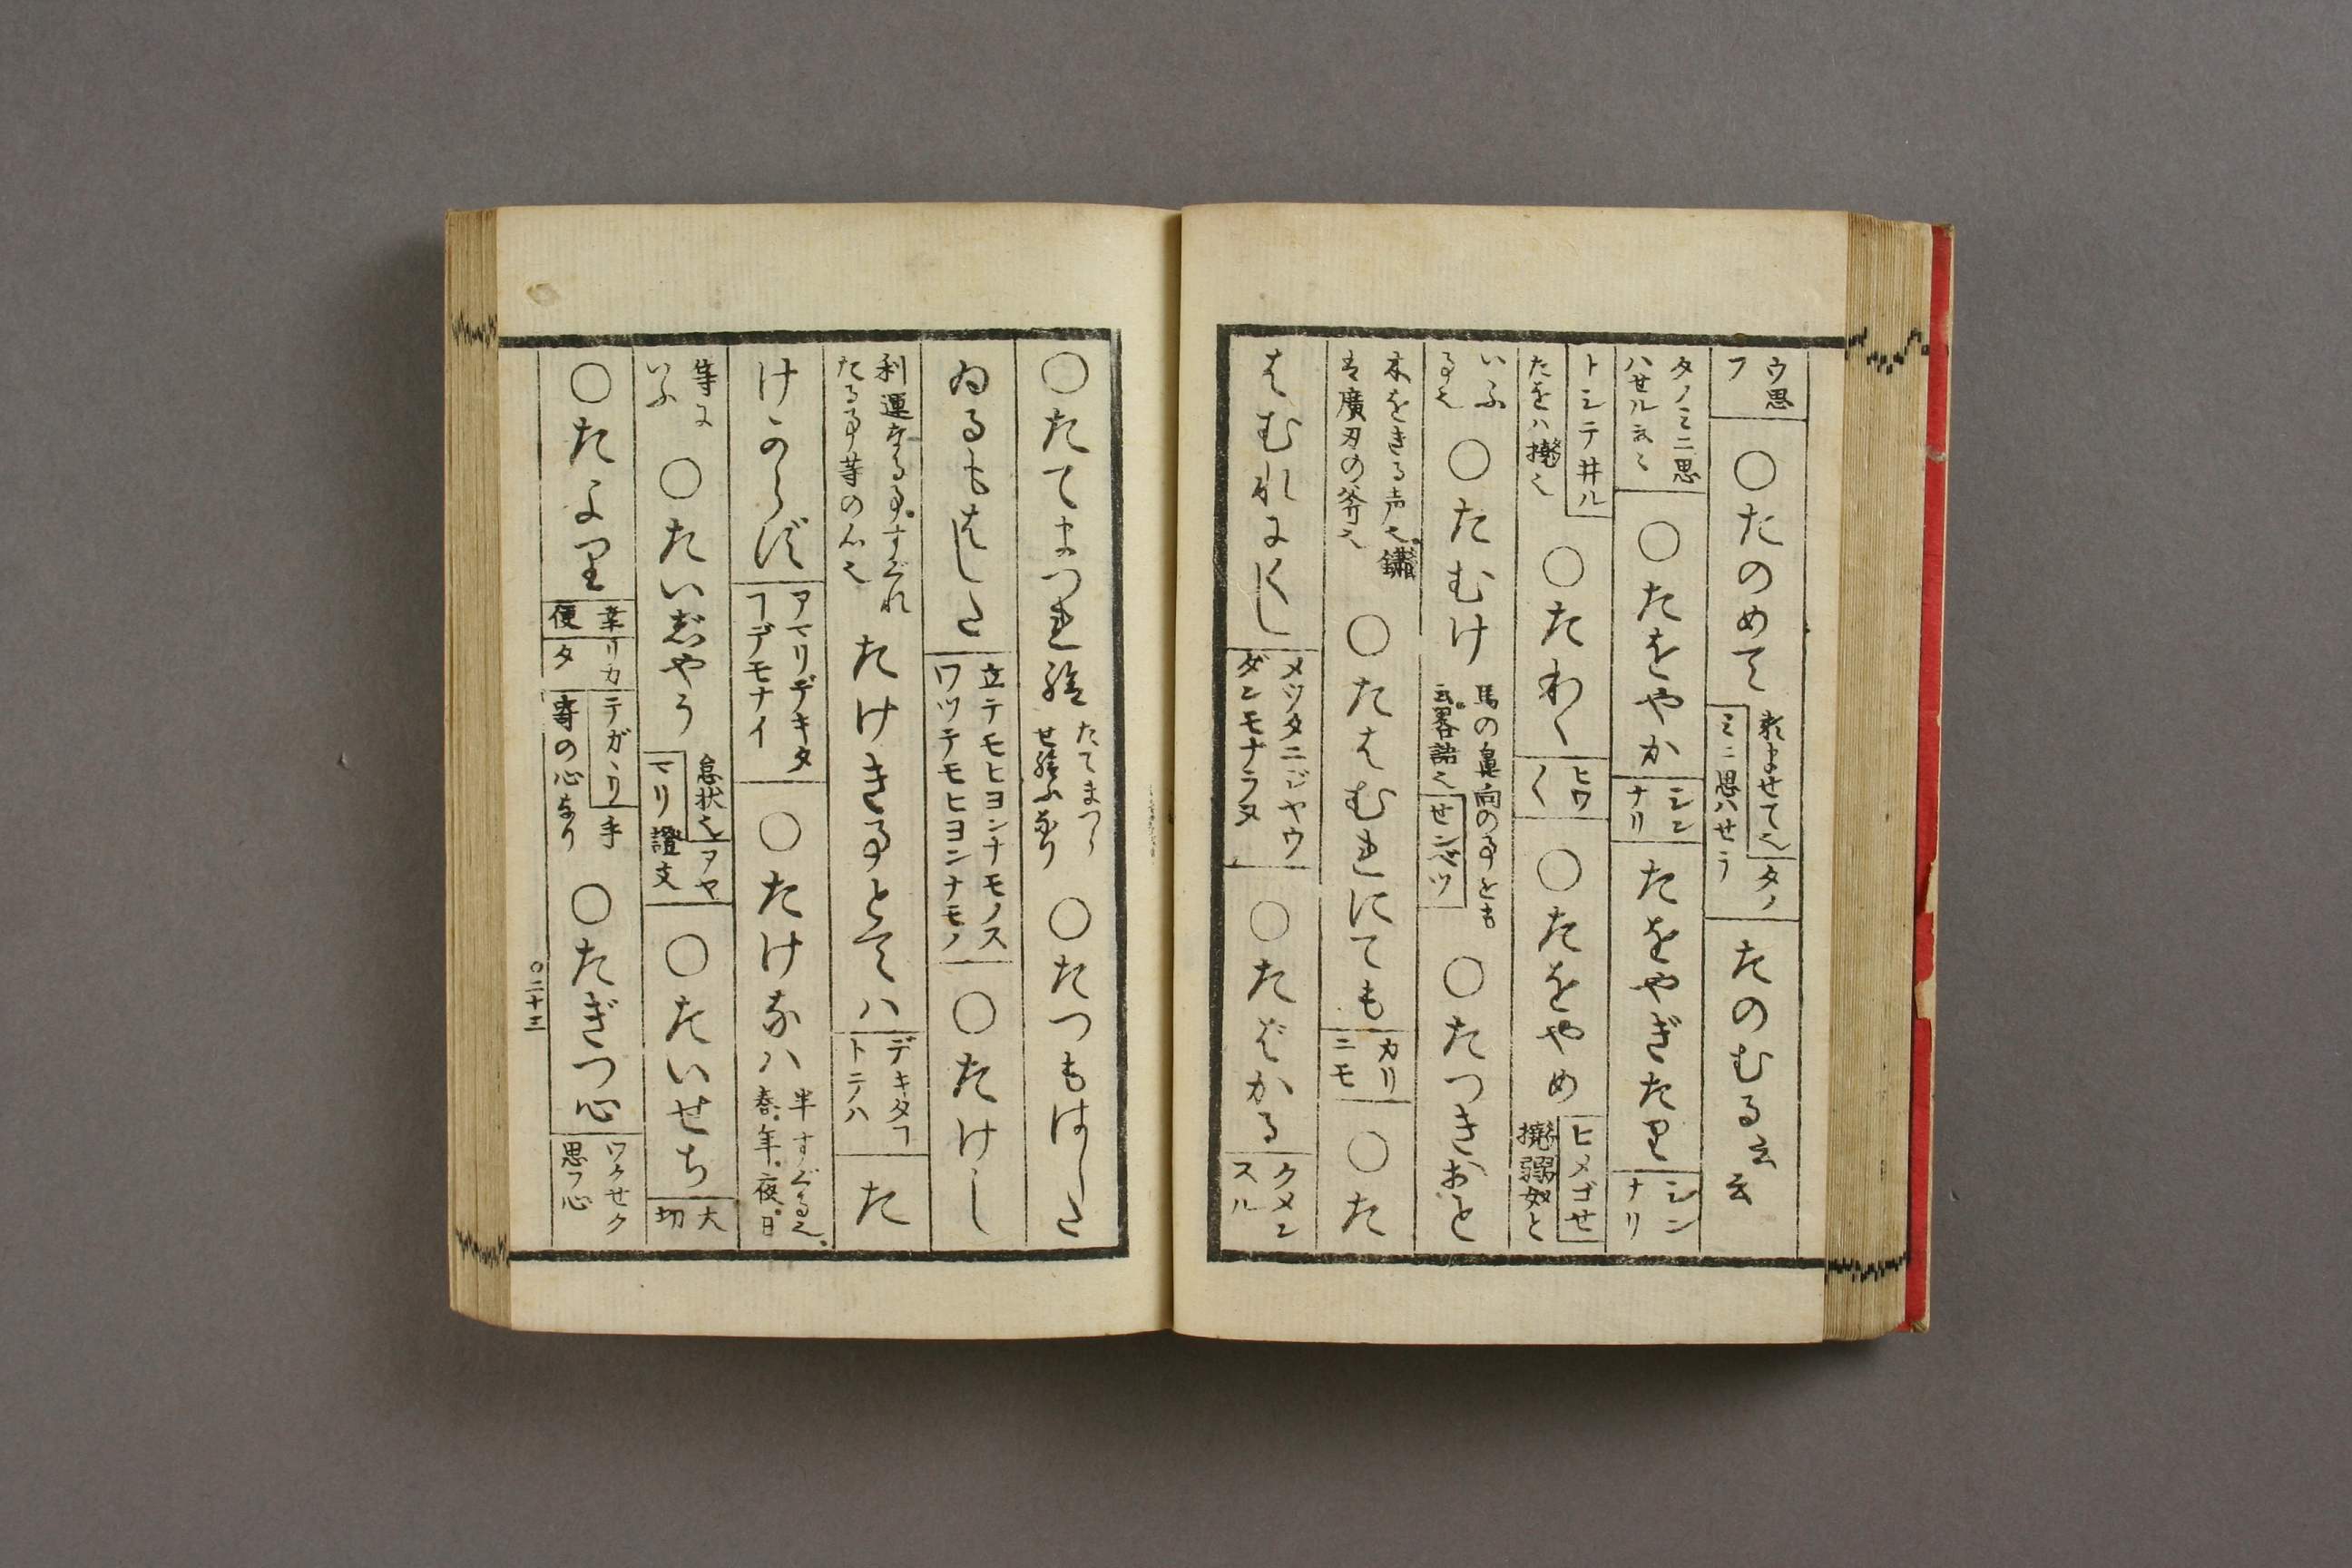 ウ思
フ
○たのめて
たのませて也
タノ
ミニ思ハせう
たのむる云云
タノミニ思
ハせル云々
○たをやか
シン
ナリ
たをやぎたり
シン
ナリ
トシテ井ル
たをハ撓也
○たわく
ヒワ
く
○たをやめ
ヒメゴせ
撓弱女と
いふ
事也
○たむけ
馬の鼻向の事とも
云畧語也
せンベツ
○たつきおと
木をきる声也。鐇
は廣刃の斧也
○たはむれにても
カリ
ニモ
○た
はむれにくし
メツタニジヤウ
ダンモナラヌ
○たばかる
クメン
スル
○たてまつれ給
たてまつら
せ給ふなり
○たつもはした
ゐるもはした
立テモヒヨンナモノス
ワツテモヒヨンナモノ
○たけし
利運なる事。すぐれ
たる事等の心也
たけき事とてハ
デキタヿ
トテハ
た
けからず
アマリデキタ
ヿデモナイ
○たけなハ
半すぐる也。
春。年。夜。日
等に
いふ
○たいじやう
怠状也
アヤ
マリ證文
○たいせち
大
切
○たより
幸
便
リカ
タ
テガヽリ
手
寄の心なり
○たぎつ心
ワクせク
思フ心
○二十三